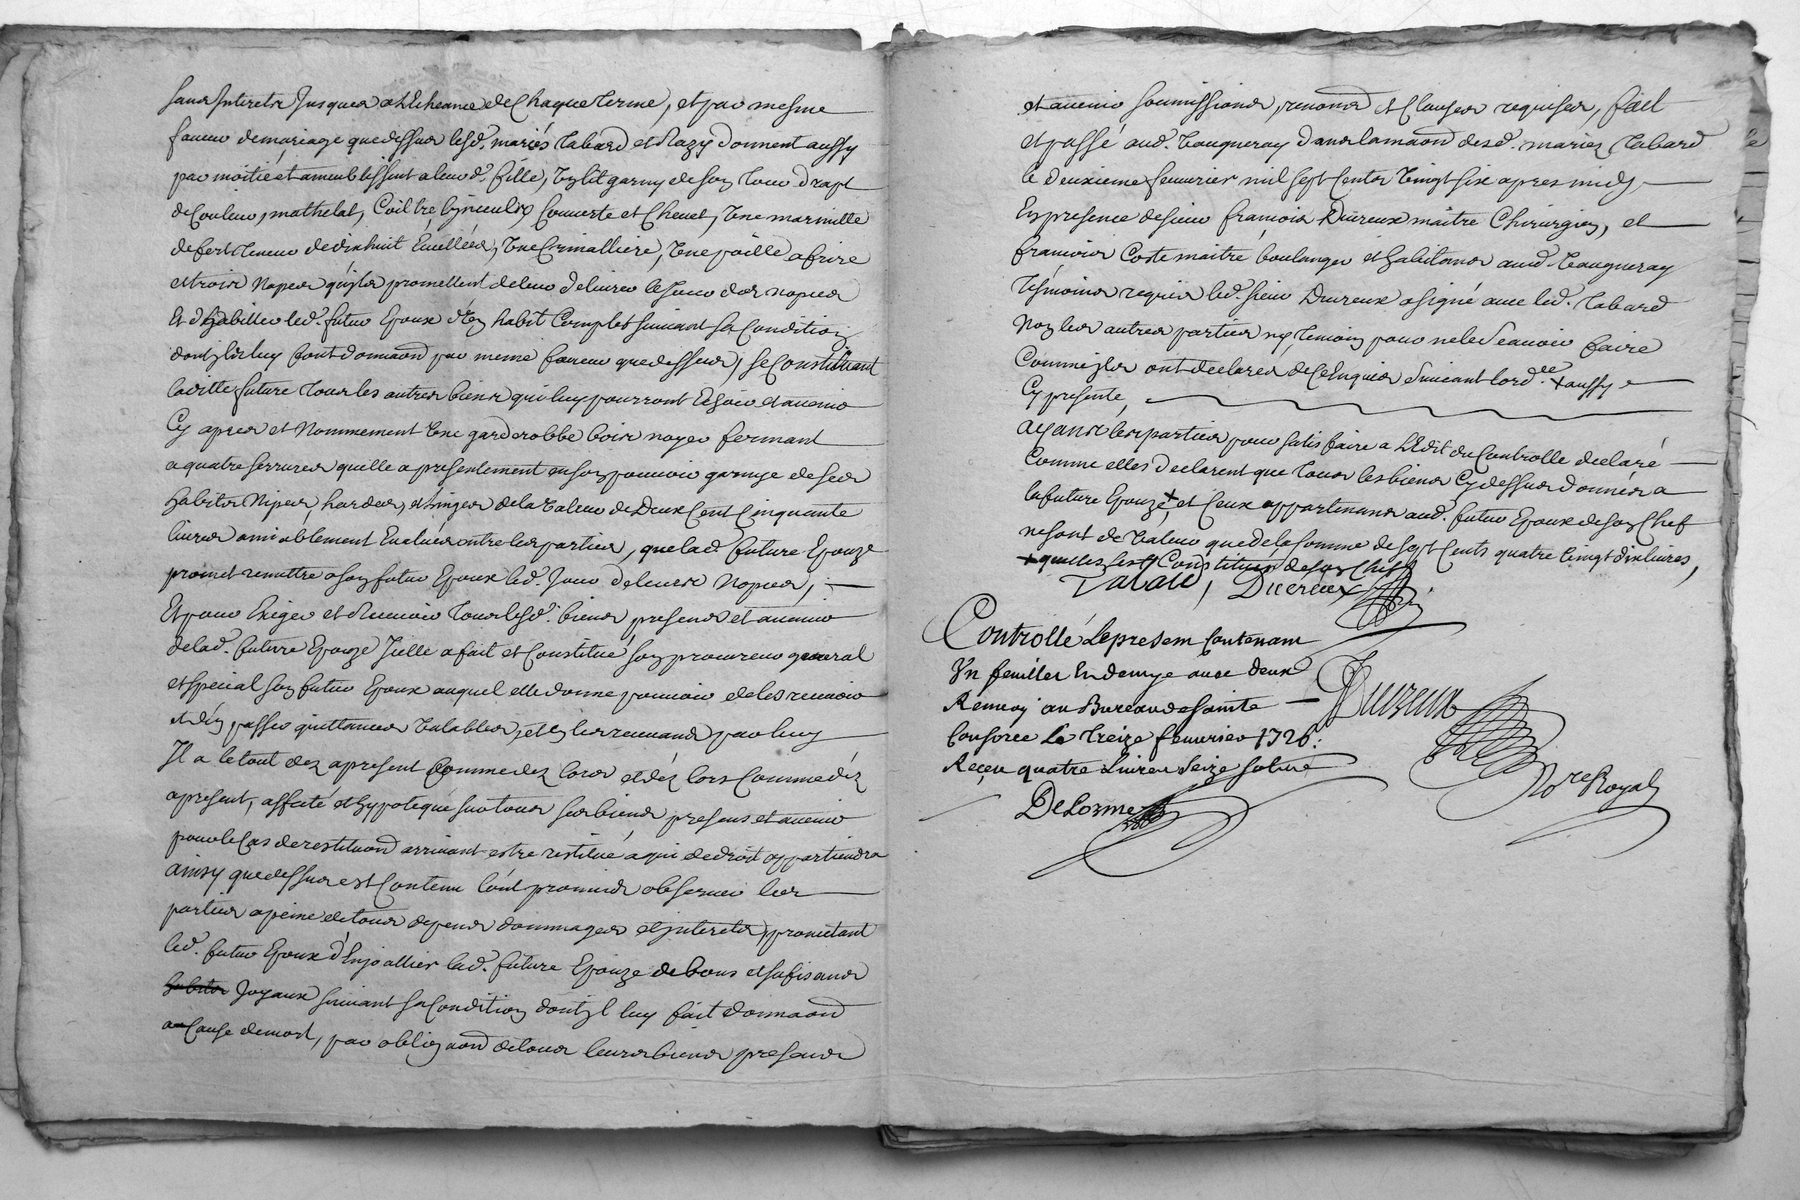 sans interets jusques a l'escheance de chaque terme, et par mesme
faveur de mariage que dessus lesd. mariés Tabard et Razy donnent aussy
par moitié et ameublissent a leurd. fille, un lit garny de son tour drapt
de couleur, mathelat, coittre cuissin, couverte et chevet, une marmitte
de fert teneur de dixhuit écuellées, une crimalliere, une poille a frire
et trois napes qu'ils promettent de leur delivrer le jour des nopces
et d'habiller led. futur epoux d'un habit complet suivant sa condition
dont ils luy font donnaon par meme faveur que dessus, se constituant
laditte future tous les autres biens qui luy pourront echoir et avenir
cy apres et nommement une garderobbe bois noyer fermant
a quatre serrures quelle a presentement en son pouvoir garnye de ses
habits nipes, hardes, et linges de la valeur de deux cent cinquante
livres amiablement evalués entre les parties, que lad. future epouze
promet remettre a son futur epoux led. jour de leurs nopces,
et pour exiger et recevoir tous lesd. biens presens et avenir
de lad. future epouze icelle a fait et constitué son procureur general
et special son futur epoux auquel elle donne pouvoir de les recevoir
et d'en passer quittances valables, et en les recevant par luy
Il a le tout dez apresent comme dez lors et dez lors comme dez
apresent, affecté et hypoteque sur tous ses biens presens et avenir
pour le cas de restituon arrivant estre restitué a qui de droit appartiendra
ainsy que dessus est contenu l'ont promis observer les
parties a peine de tous depens dommages et interets, promettant
led. futur epoux d'enjoallier lad. future epouze de bons et sufisans
habits joyaux suivant sa condition dont il luy fait donnaon
a cause de mort, par obligaon de tous leurs biens presens
et avenir soumissions, renons et clauses requises, fait
et passé aud. Vaugneray dans la maison desd. mariez Tabard
le deuxieme fevrier mil sept cents vingt six apres midy
en presence de sieur françois Ducreux maitre chirurgien, et
françois Coste maitre boulanger et habitans aud. Vaugneray
tesmoins requis led. sieur Ducreux a signé avec led. Tabard
non les autres parties ny temoin pour ne le sçavoir faire
comme ils ont declarés de ce enquis suivant lord.ce + aussy
cy presente,
ayant les parties pour satisfaire a l'edit du controlle declaré
comme elles declarent que tous les biens cy dessus donnés a
la future epouze + et ceux appartenans aud. futur epoux de son chef
ne sont de valeur que de la somme de sept cents quatre vingt dix livres,
+ quelle s'est constitués de son chef
Tabard, Ducreux
Controllé le present contenant
un feuillet en demye avec deux
Renvoy au Bureau de sainte
Consorce le treize fevrier 1726.
Reçeu quatre livres seize sols
DeLorme
Ducreux
No.re Royal